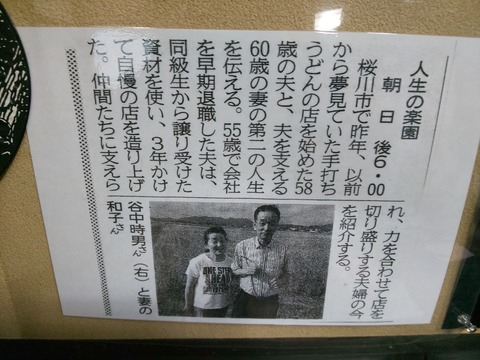 人生の楽園
朝日 後6・00
桜川市で昨年、以前
から夢見ていた手打ち
うどんの店を始めた58
歳の夫と、夫を支える
60歳の妻の第二の人生
を伝える。55歳で会社
を早期退職した夫は、
同級生から譲り受けた
資材を使い、3年かけ
て自慢の店を造り上げ
た。仲間たちに支えら
れ、力を合わせて店を
切り盛りする夫婦の今
を紹介する。
谷中時男さん(右)と妻の
和子さん